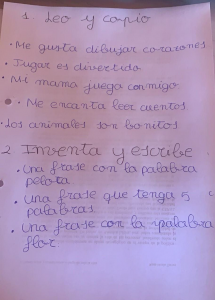 1. Leo y copio
• Me gusta dibujar corazones
• Jugar es divertido
• Mi mama juega conmigo.
• Me encanta leer cuentos.
• Los animales son bonitos
2 Inventa y escribe
• Una frase con la palabra
pelota
• Una frase que tenga 5
palabras.
• Una frase con la palabra
flor